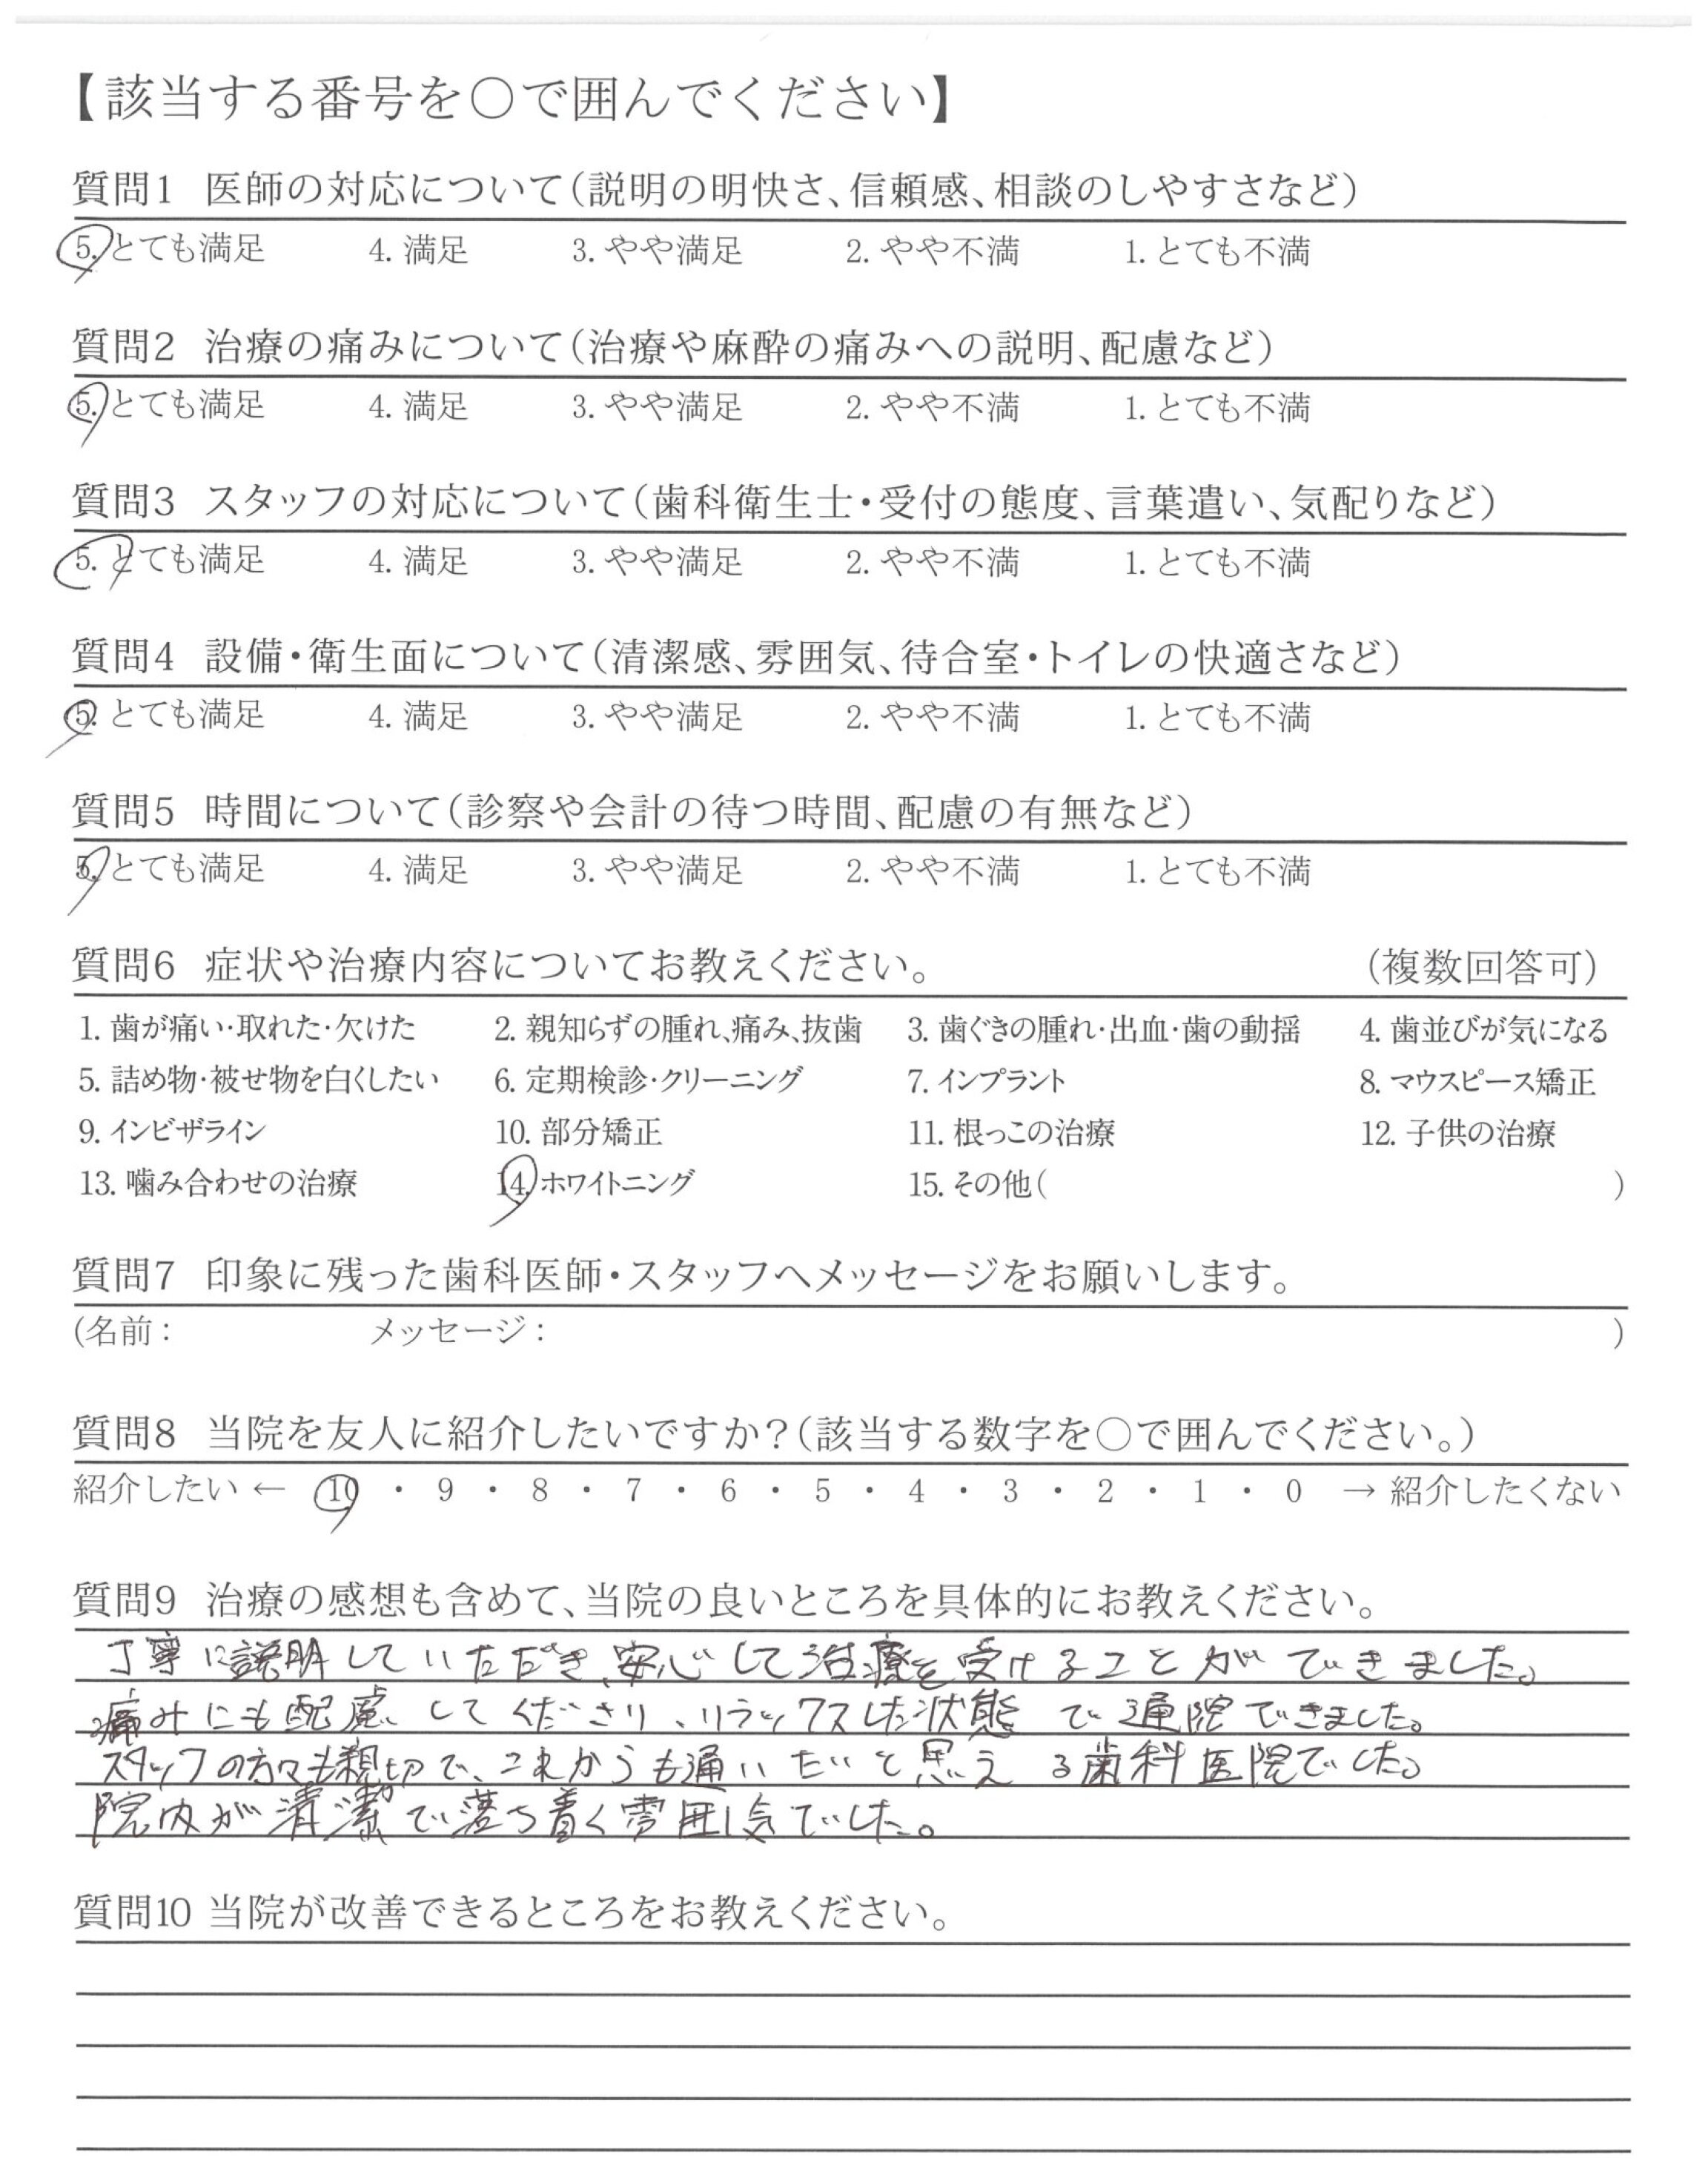 【該当する番号を○で囲んでください】
質問1 医師の対応について(説明の明快さ、信頼感、相談のしやすさなど)
5. とても満足 4. 満足 3. やや満足 2. やや不満 1. とても不満
質問2 治療の痛みについて(治療や麻酔の痛みへの説明、配慮など)
5. とても満足 4. 満足 3. やや満足 2. やや不満 1. とても不満
質問3 スタッフの対応について(歯科衛生士・受付の態度、言葉遣い、気配りなど)
5. とても満足 4. 満足 3. やや満足 2. やや不満 1. とても不満
質問4 設備・衛生面について(清潔感、雰囲気、待合室・トイレの快適さなど)
5. とても満足 4. 満足 3. やや満足 2. やや不満 1. とても不満
質問5 時間について(診察や会計の待つ時間、配慮の有無など)
5. とても満足 4. 満足 3. やや満足 2. やや不満 1. とても不満
質問6 症状や治療内容についてお教えください。 (複数回答可)
1. 歯が痛い・取れた・欠けた 2. 親知らずの腫れ、痛み、抜歯 3. 歯ぐきの腫れ・出血・歯の動揺 4. 歯並びが気になる
5. 詰め物・被せ物を白くしたい 6. 定期検診・クリーニング 7. インプラント 8. マウスピース矯正
9. インビザライン 10. 部分矯正 11. 根っこの治療 12. 子供の治療
13. 噛み合わせの治療 14. ホワイトニング 15. その他( )
質問7 印象に残った歯科医師・スタッフへメッセージをお願いします。
(名前: メッセージ: )
質問8 当院を友人に紹介したいですか?(該当する数字を○で囲んでください。)
紹介したい ← 10 ・ 9 ・ 8 ・ 7 ・ 6 ・ 5 ・ 4 ・ 3 ・ 2 ・ 1 ・ 0 → 紹介したくない
質問9 治療の感想も含めて、当院の良いところを具体的にお教えください。
丁寧に説明していただき、安心して治療を受けることができました。
痛みにも配慮してくださり、リラックスした状態で通院できました。
スタッフの方々も親切で、これからも通いたいと思える歯科医院でした。
院内が清潔で落ち着く雰囲気でした。
質問10 当院が改善できるところをお教えください。